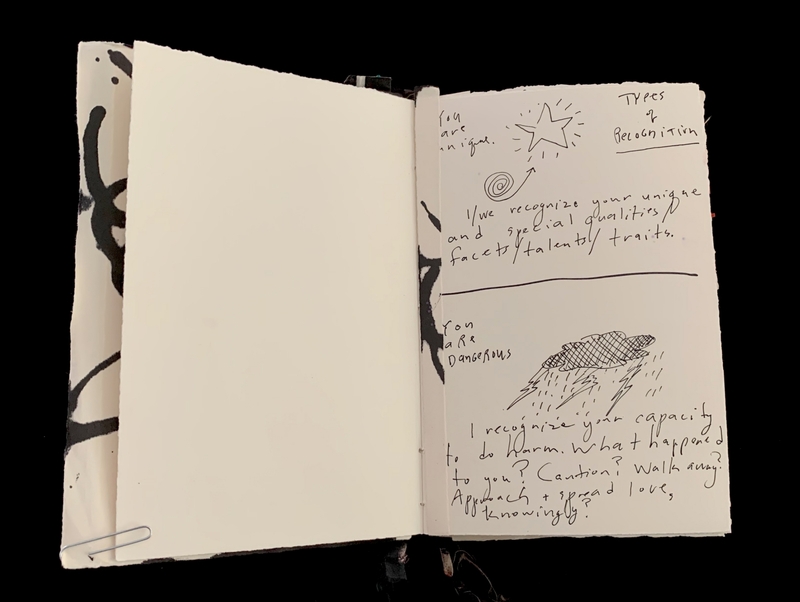 Types
of
Recognition
You
are
unique.
I/we recognize your unique
and special qualities/
facets/talents/traits.
You
aRe
DANgeROUS
I recognize your capacity
to do harm. What happened
to you? Caution? Walk away?
Approach + spread love,
knowingly?